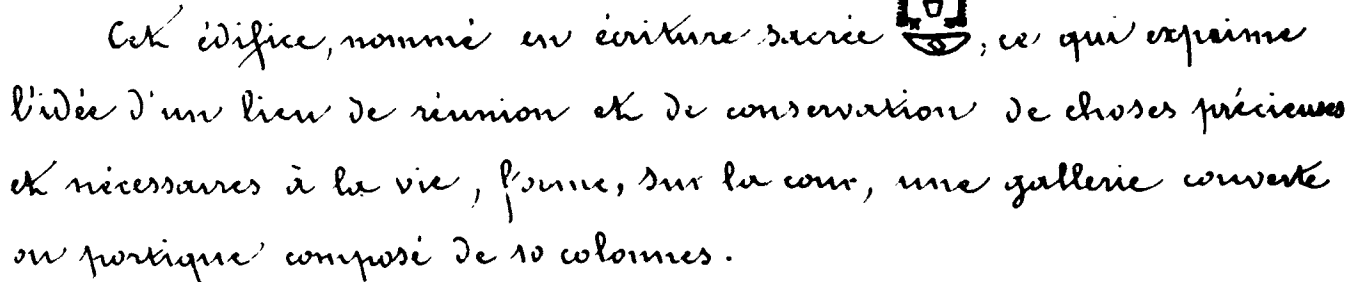 Cet édifice, nommé en écriture sacrée , ce qui exprime
l'idée d'un lieu de réunion et de conservation de choses précieuses
et nécessaires à la vie, forme, sur la cour, une gallerie couverte
ou portique composé de 10 colonnes.